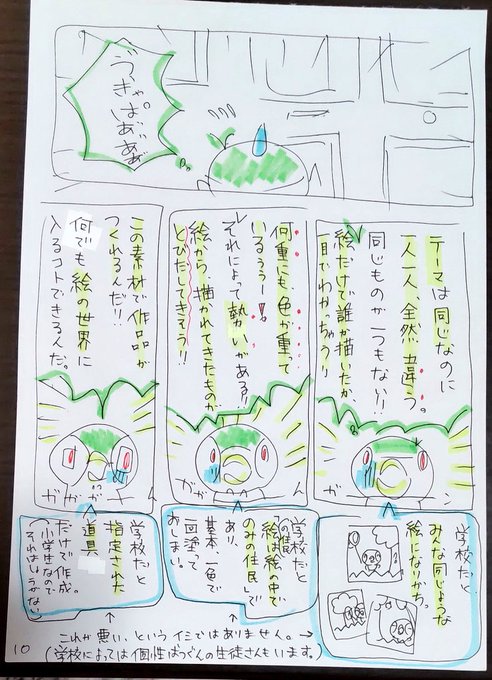 う、
きゃぱ
ばぁぁぁ
テーマは同じなのに
一人一人、全然違う。
同じものが一つもない!!
絵だけで誰が描いたか、
一目でわかっちゃう!!
何重にも、色が重って
いるぅぅー!!
それによって勢いがある!!
絵から、描かれてきたものが、
とびだしてきそう!!
この素材で作品が
つくれるんだ!!
何でも絵の世界に
入るコトできるんだ。
ガガガ
ガガ
ガガ
学校だと
みんな同じような
絵になりがち。
学校だと
「絵は絵の中で
のみの住民」で
あり、
基本一色で
一回塗って
おしまい。
学校だと
指定された
道具
だけで作成。
(小学生なので
それはしょうがない)
↑ これが悪い、というイミではありません。→
(学校によっては個性ばつぐんの生徒さんもいます。)
10